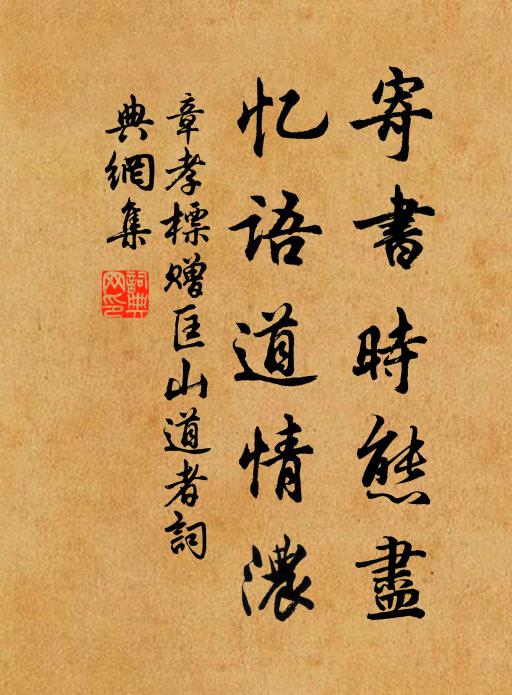 寄書時態盡
忆語道情濃
章孝標贈匡山道者詞
典網集
詞典
网印